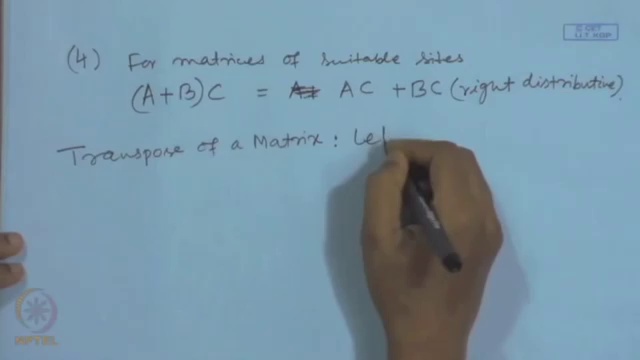 © CET
I.I.T. KGP
(4) For matrices of suitable sizes
(A+B)C = AC + BC (right distributive).
Transpose of a Matrix : Let
NPTEL